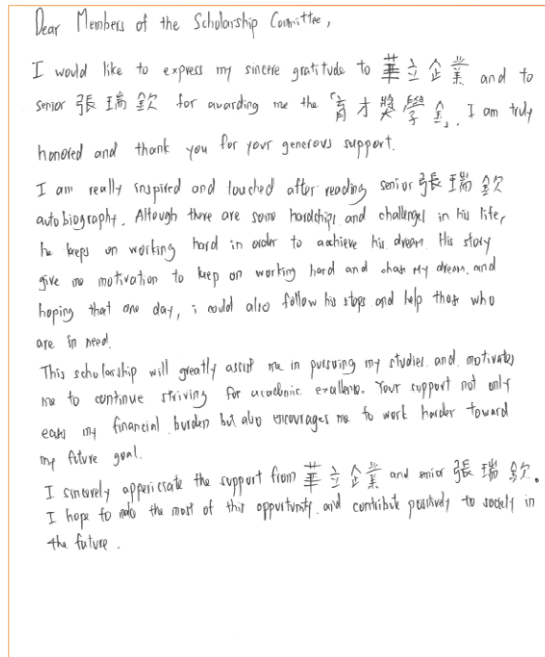 Dear Members of the Scholarship Committee,
I would like to express my sincere gratitude to 華立企業 and to
senior 張瑞欽 for awarding me the「育才獎學金」. I am truly
honored and thank you for your generous support.
I am really inspired and touched after reading senior 張瑞欽
autobiography. Altough there are some hardships and challenges in his life,
he keeps on working hard in order to achieve his dream. His story
give me motivation to keep on working hard and chase my dream. and
hoping that one day, i could also follow his steps and help those who
are in need.
This scholarship will greatly assist me in pursuing my studies and motivates
me to continue striving for academic excellence. Your support not only
eases my financial burden but also encourages me to work harder toward
my future goal.
I sincerely appericiate the support from 華立企業 and senior 張瑞欽.
I hope to make the most of this opportunity and contribute positively to society in
the future.